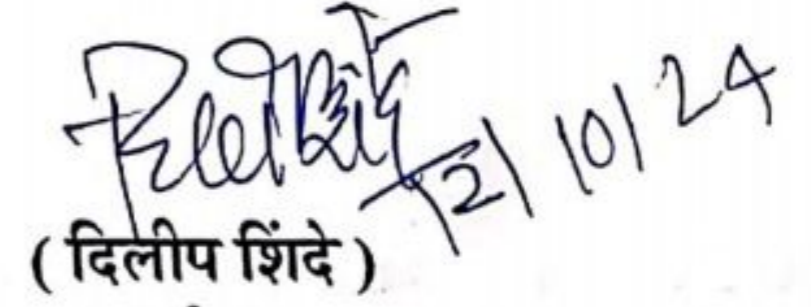 12/10/24
( दिलीप शिंदे )